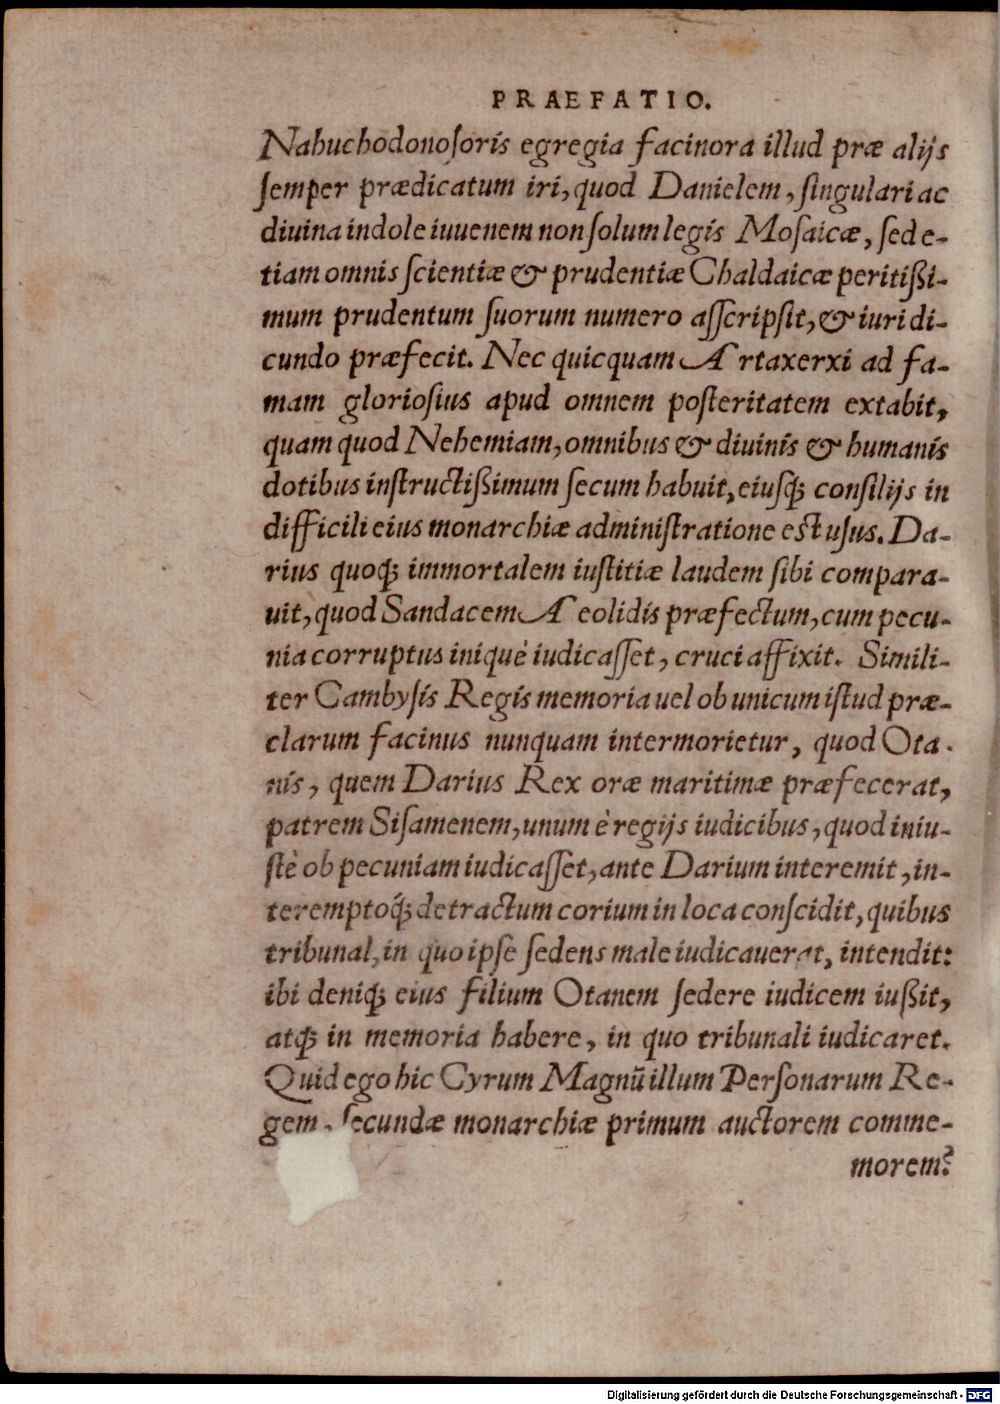 PRAEFATIO.
Nabuchodonoſoris egregia facinora illud præ alijs
ſemper prædicatum iri, quod Danielem, ſingulari ac
diuina indole iuuenem non ſolum legis Moſaicæ, ſed e-
tiam omnis ſcientiæ & prudentiæ Chaldaicæ peritißi-
mum prudentum ſuorum numero aſſcripſit, & iuri di-
cundo præfecit. Nec quicquam Artaxerxi ad fa-
mam glorioſius apud omnem poſteritatem extabit,
quam quod Nehemiam, omnibus & diuinis & humanis
dotibus inſtructißimum ſecum habuit, eiusq́; conſilijs in
difficili eius monarchiæ adminiſtratione eſt uſus. Da-
rius quoq́; immortalem iuſtitiæ laudem ſibi compara-
uit, quod Sandacem Aeolidis præfectum, cum pecu-
nia corruptus iniquè iudicaſſet, cruci affixit. Simili-
ter Cambyſis Regis memoria uel ob unicum iſtud præ-
clarum facinus nunquam intermorietur, quod Ota-
nis, quem Darius Rex oræ maritimæ præfecerat,
patrem Siſamenem, unum è regijs iudicibus, quod iniu-
ſtè ob pecuniam iudicaſſet, ante Darium interemit, in-
teremptoq́; detractum corium in loca conſcidit, quibus
tribunal, in quo ipſe ſedens male iudicauerat, intendit:
ibi deniq́; eius filium Otanem ſedere iudicem iußit,
atq́; in memoria habere, in quo tribunali iudicaret.
Quid ego hic Cyrum Magnū illum Perſonarum Re-
gem, ſecundæ monarchiæ primum auctorem comme-
morem?
Digitalisierung gefördert durch die Deutsche Forschungsgemeinschaft - DFG